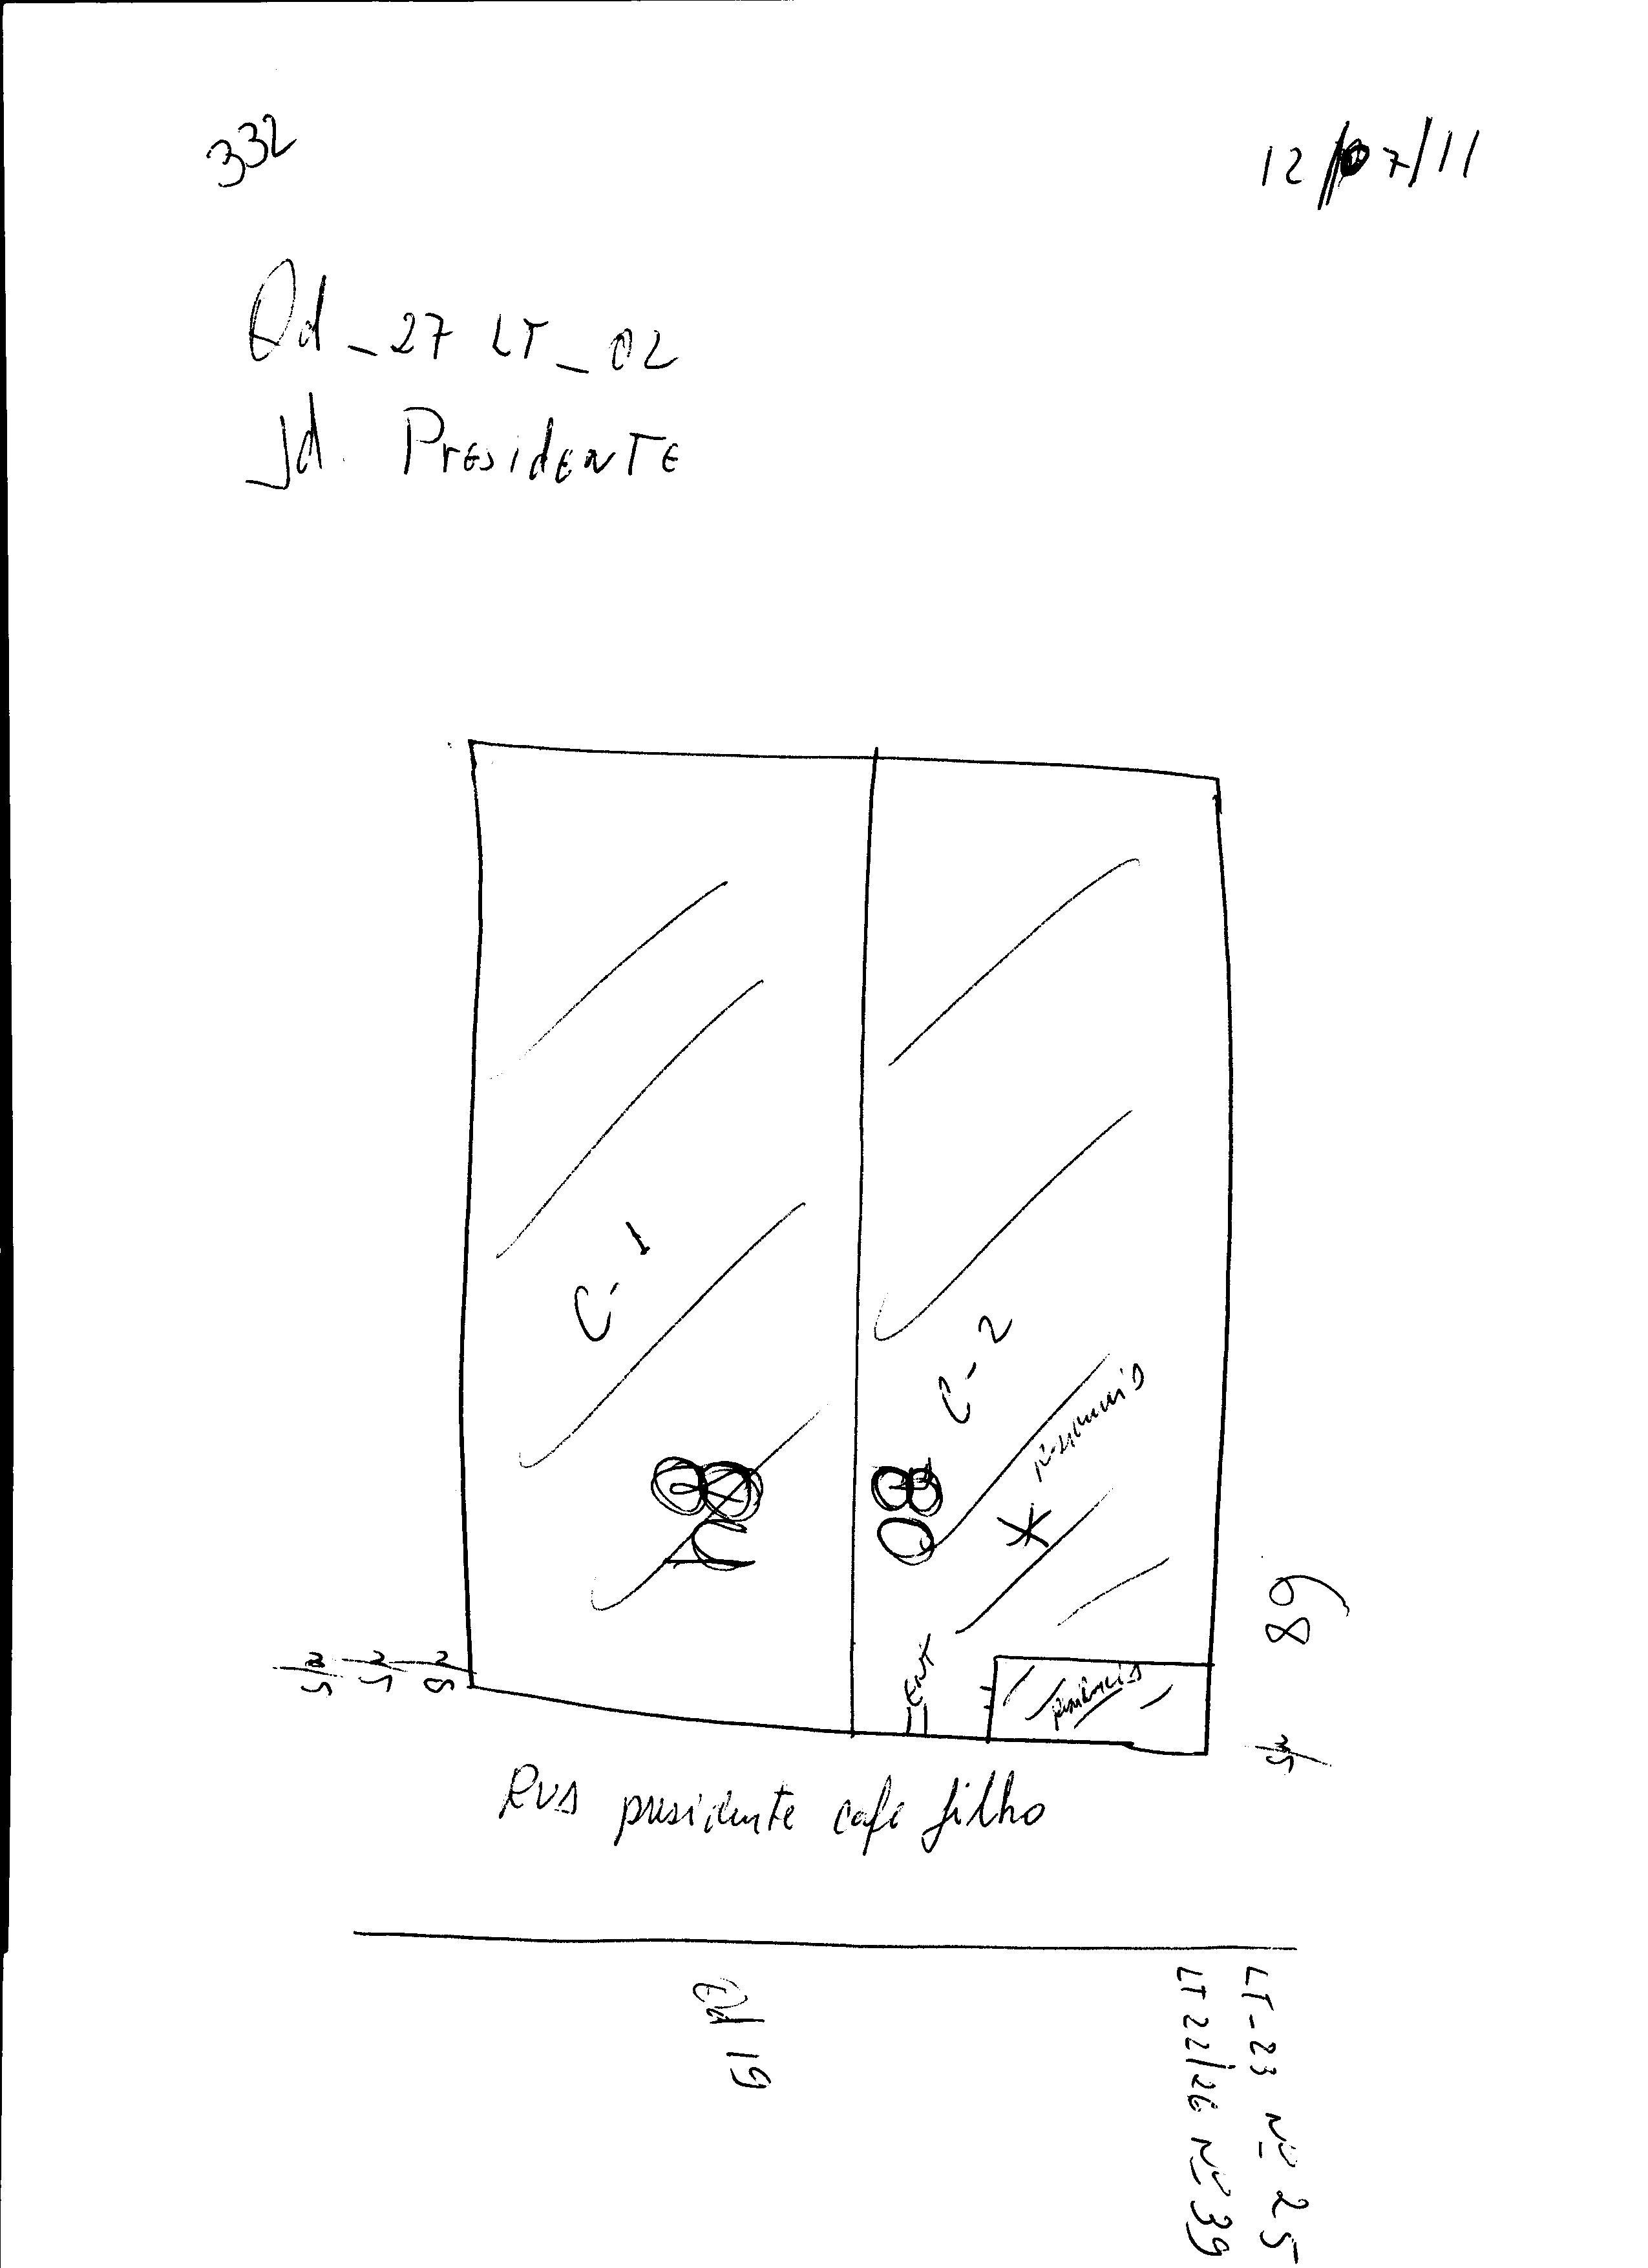 332
12/07/11
Qd - 27 LT - 02
Jd. PresidENTE
C-1
C-2
08
ENT
68
RUA presidente cafe filho
Qd 19
LT-23 Nº 25
LT 22/26 Nº 39